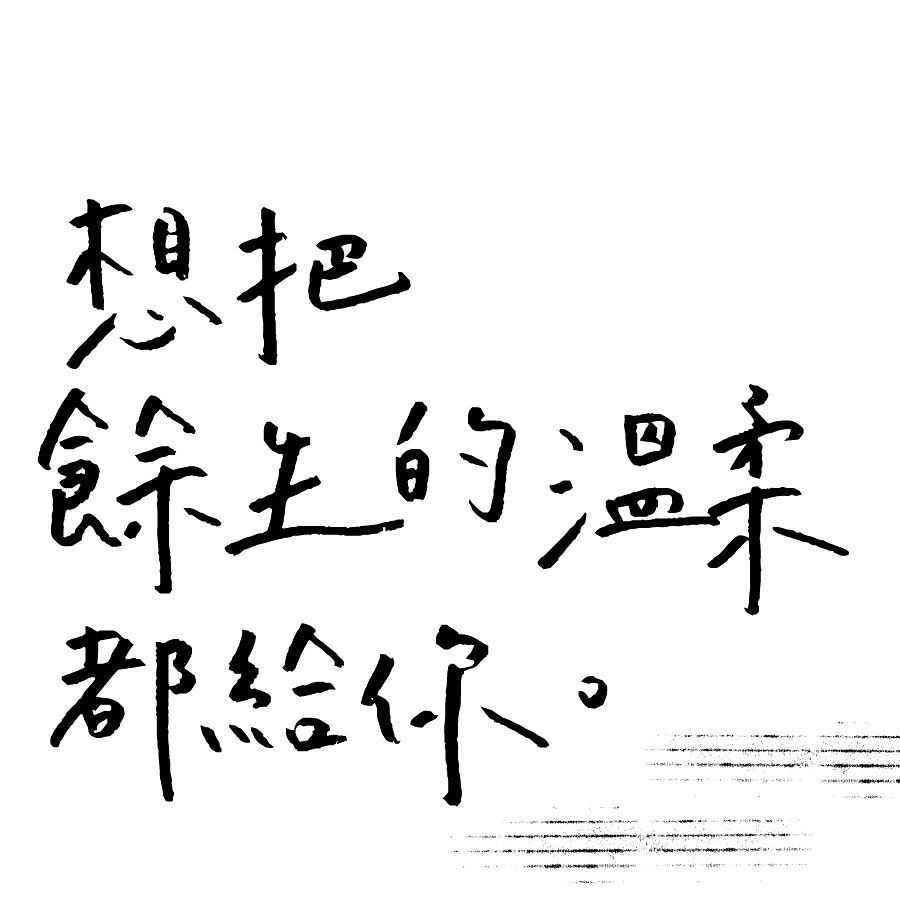 想把
餘生的溫柔
都給你。